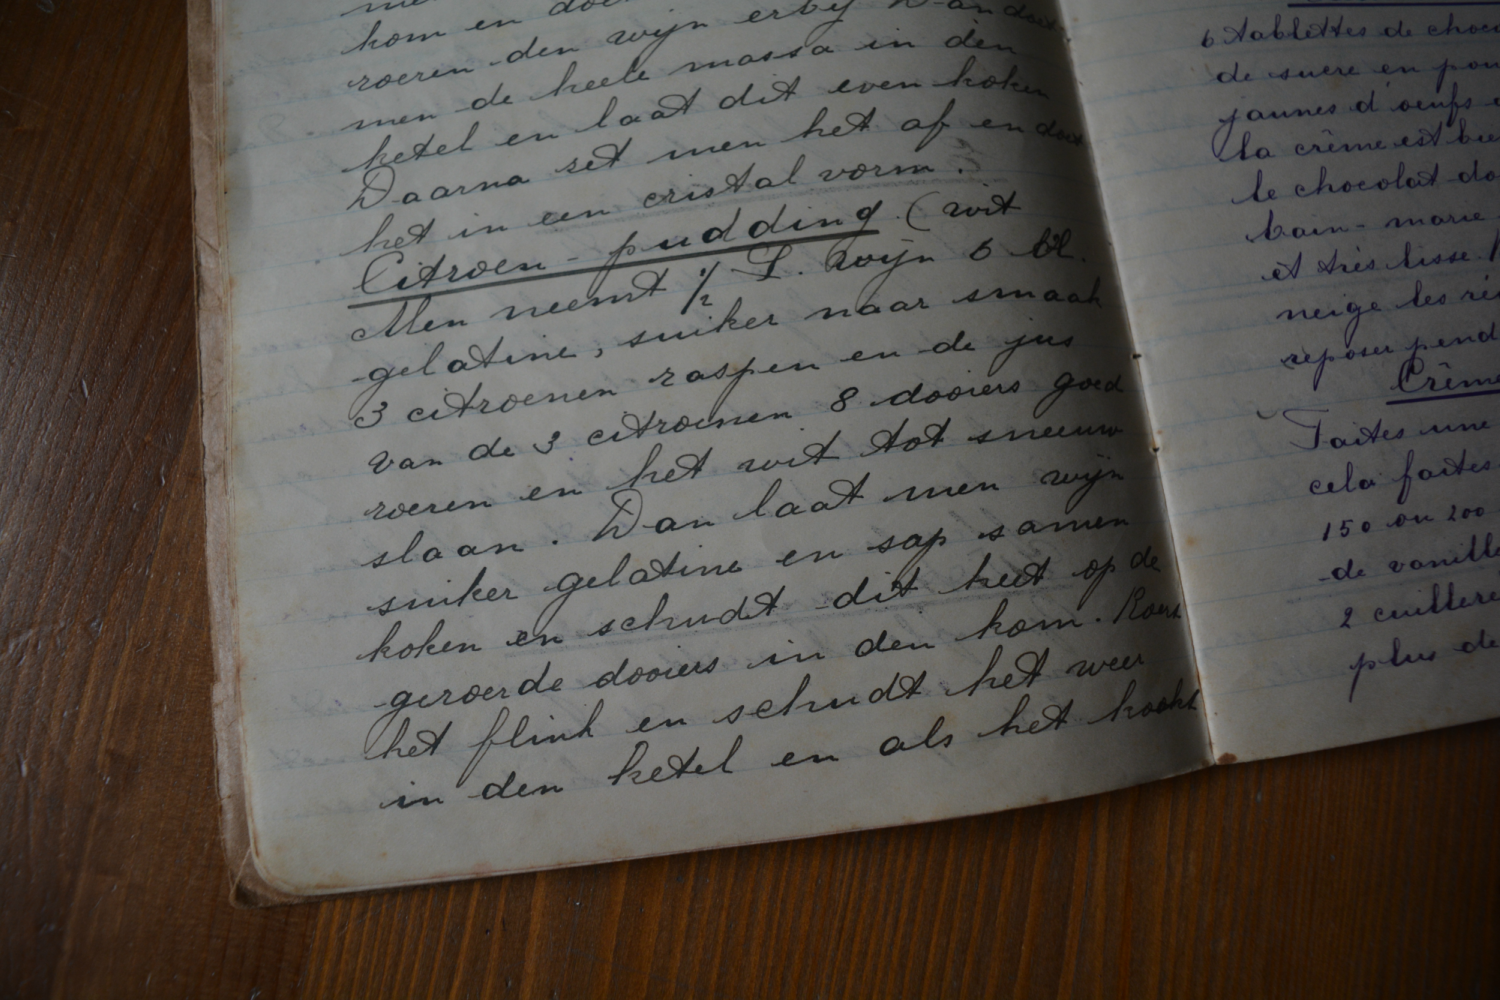 kom en
roeren den wijn erbij Dan doet
men de heele massa in den
ketel en laat dit even koken
Daarna set men het af en doet
het in een cristal vorm.
Citroen-pudding (wit
Men neemt 1/2 L. wijn 6 bl.
gelatine, suiker naar smaak
3 citroenen raspen en de jus
van de 3 citroenen 8 dooiers goed
roeren en het wit tot sneeuw
slaan. Dan laat men wijn
suiker gelatine en sap samen
koken en schudt dit heet op de
geroerde dooiers in den kom. Roert
het flink en schudt het weer
in den ketel en als het kookt
6 tablettes de choc
de sucre en pou
jaunes d'oeufs
la crème est bie
le chocolat do
bain-marie
et très lisse
neige les
reposer pend
Crème
Faites une
cela faites
150 ou 200
de vanille
2 cuillere
plus de